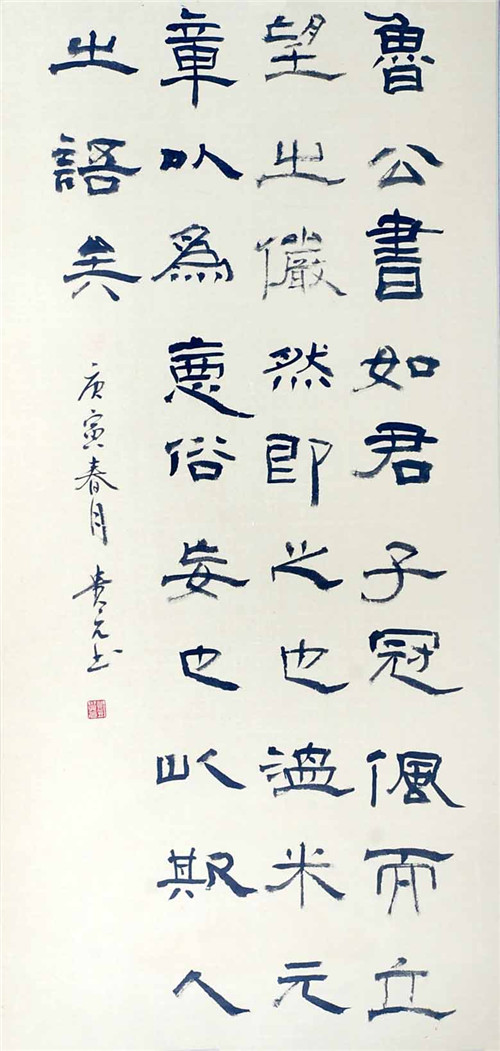 魯公書如君子冠佩而立
望之儼然即之也溫米元
章以為惡俗妄也此欺人
之語矣
庚寅春月 贵元书